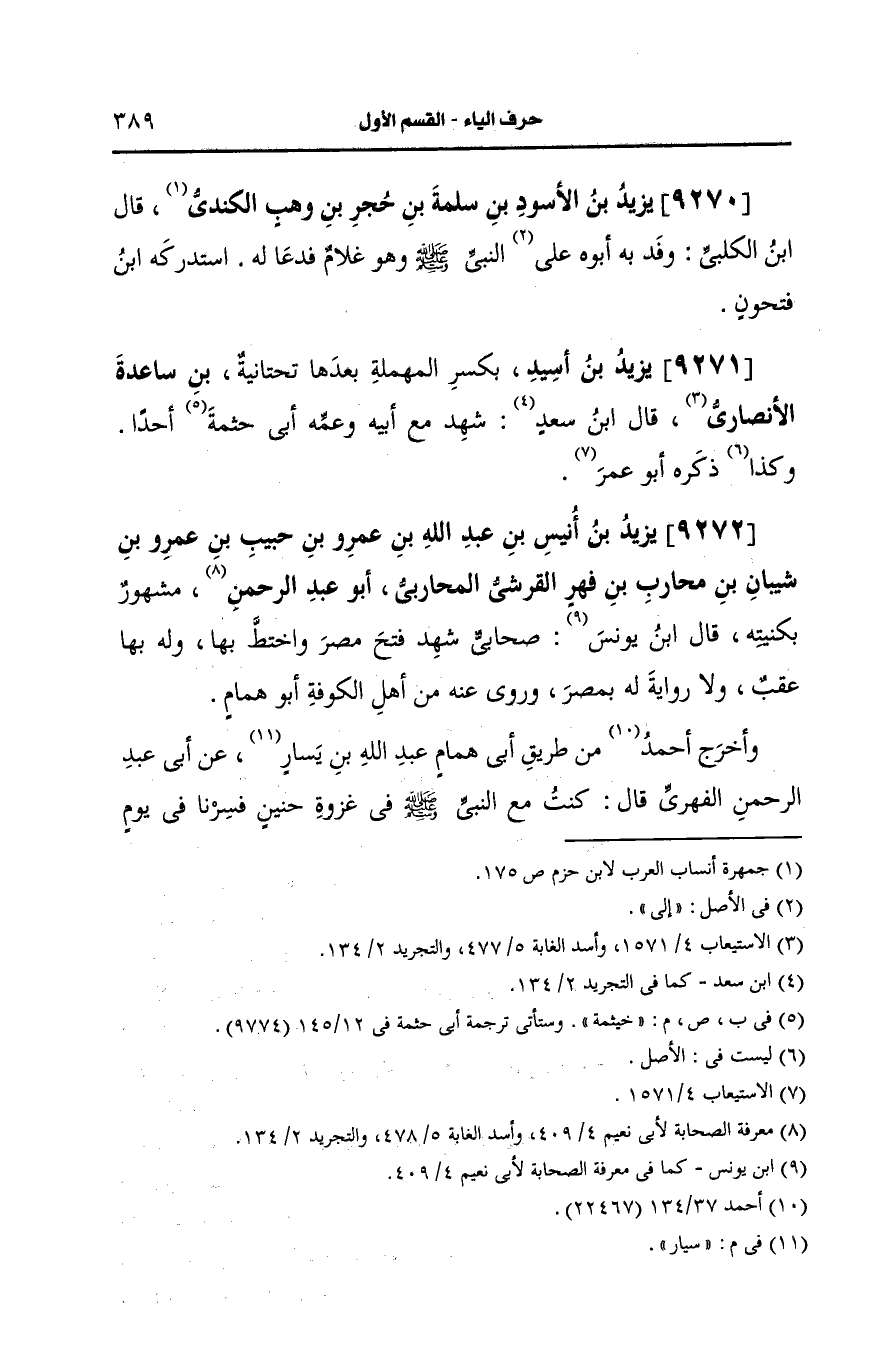 حرف الياء - القسم الأول ٣٨٩
[٩٢٧٠] يزيدُ بنُ الأسودِ بنِ سلمةَ بنِ حُجرِ بنِ وهبٍ الكندىُّ(١)، قال
ابنُ الكلبىِّ : وفَد به أبوه على(٢) النبىِّ ﷺ وهو غلامٌ فدعَا له . استدركَه ابنُ
فتحونٍ .
[٩٢٧١] يزيدُ بنُ أسِيدِ ، بكسرِ المهملةِ بعدَها تحتانيةٌ ، بنِ ساعدةَ
الأنصارىُّ(٣) ، قال ابنُ سعدٍ(٤) : شهِد مع أبيه وعمِّه أبى حثمةَ(٥) أحدًا .
وكذا(٦) ذكَره أبو عمرَ(٧) .
[٩٢٧٢] يزيدُ بنُ أُنيسِ بنِ عبدِ اللهِ بنِ عمرِو بنِ حبيبِ بنِ عمرِو بنِ
شيبانِ بنِ محاربِ بنِ فهرٍ القرشىُّ المحاربىُّ ، أبو عبدِ الرحمنِ(٨) ، مشهورٌ
بكنيتِه ، قال ابنُ يونسَ(٩) : صحابىٌّ شهِد فتحَ مصرَ واختطَّ بها ، وله بها
عقبٌ ، ولا روايةَ له بمصرَ ، وروى عنه من أهلِ الكوفةِ أبو همامٍ .
وأخرَج أحمدُ(١٠) من طريقِ أبى همامٍ عبدِ اللهِ بنِ يَسارٍ(١١) ، عن أبى عبدِ
الرحمنِ الفهرىِّ قال : كنتُ مع النبىِّ ﷺ فى غزوةِ حنينٍ فسِرْنا فى يومٍ
(١) جمهرة أنساب العرب لابن حزم ص ١٧٥.
(٢) فى الأصل : «إلى» .
(٣) الاستيعاب ٤/ ١٥٧١، وأسد الغابة ٥/ ٤٧٧، والتجريد ٢/ ١٣٤.
(٤) ابن سعد - كما فى التجريد ٢/ ١٣٤.
(٥) فى ب ، ص ، م : «خيثمة» . وستأتى ترجمة أبى حثمة فى ١٤٥/١٢ (٩٧٧٤).
(٦) ليست فى : الأصل .
(٧) الاستيعاب ١٥٧١/٤ .
(٨) معرفة الصحابة لأبى نعيم ٤/ ٤٠٩، وأسد الغابة ٥/ ٤٧٨، والتجريد ٢/ ١٣٤.
(٩) ابن يونس - كما فى معرفة الصحابة لأبى نعيم ٤/ ٤٠٩.
(١٠) أحمد ١٣٤/٣٧ (٢٢٤٦٧) .
(١١) فى م : «سيار» .